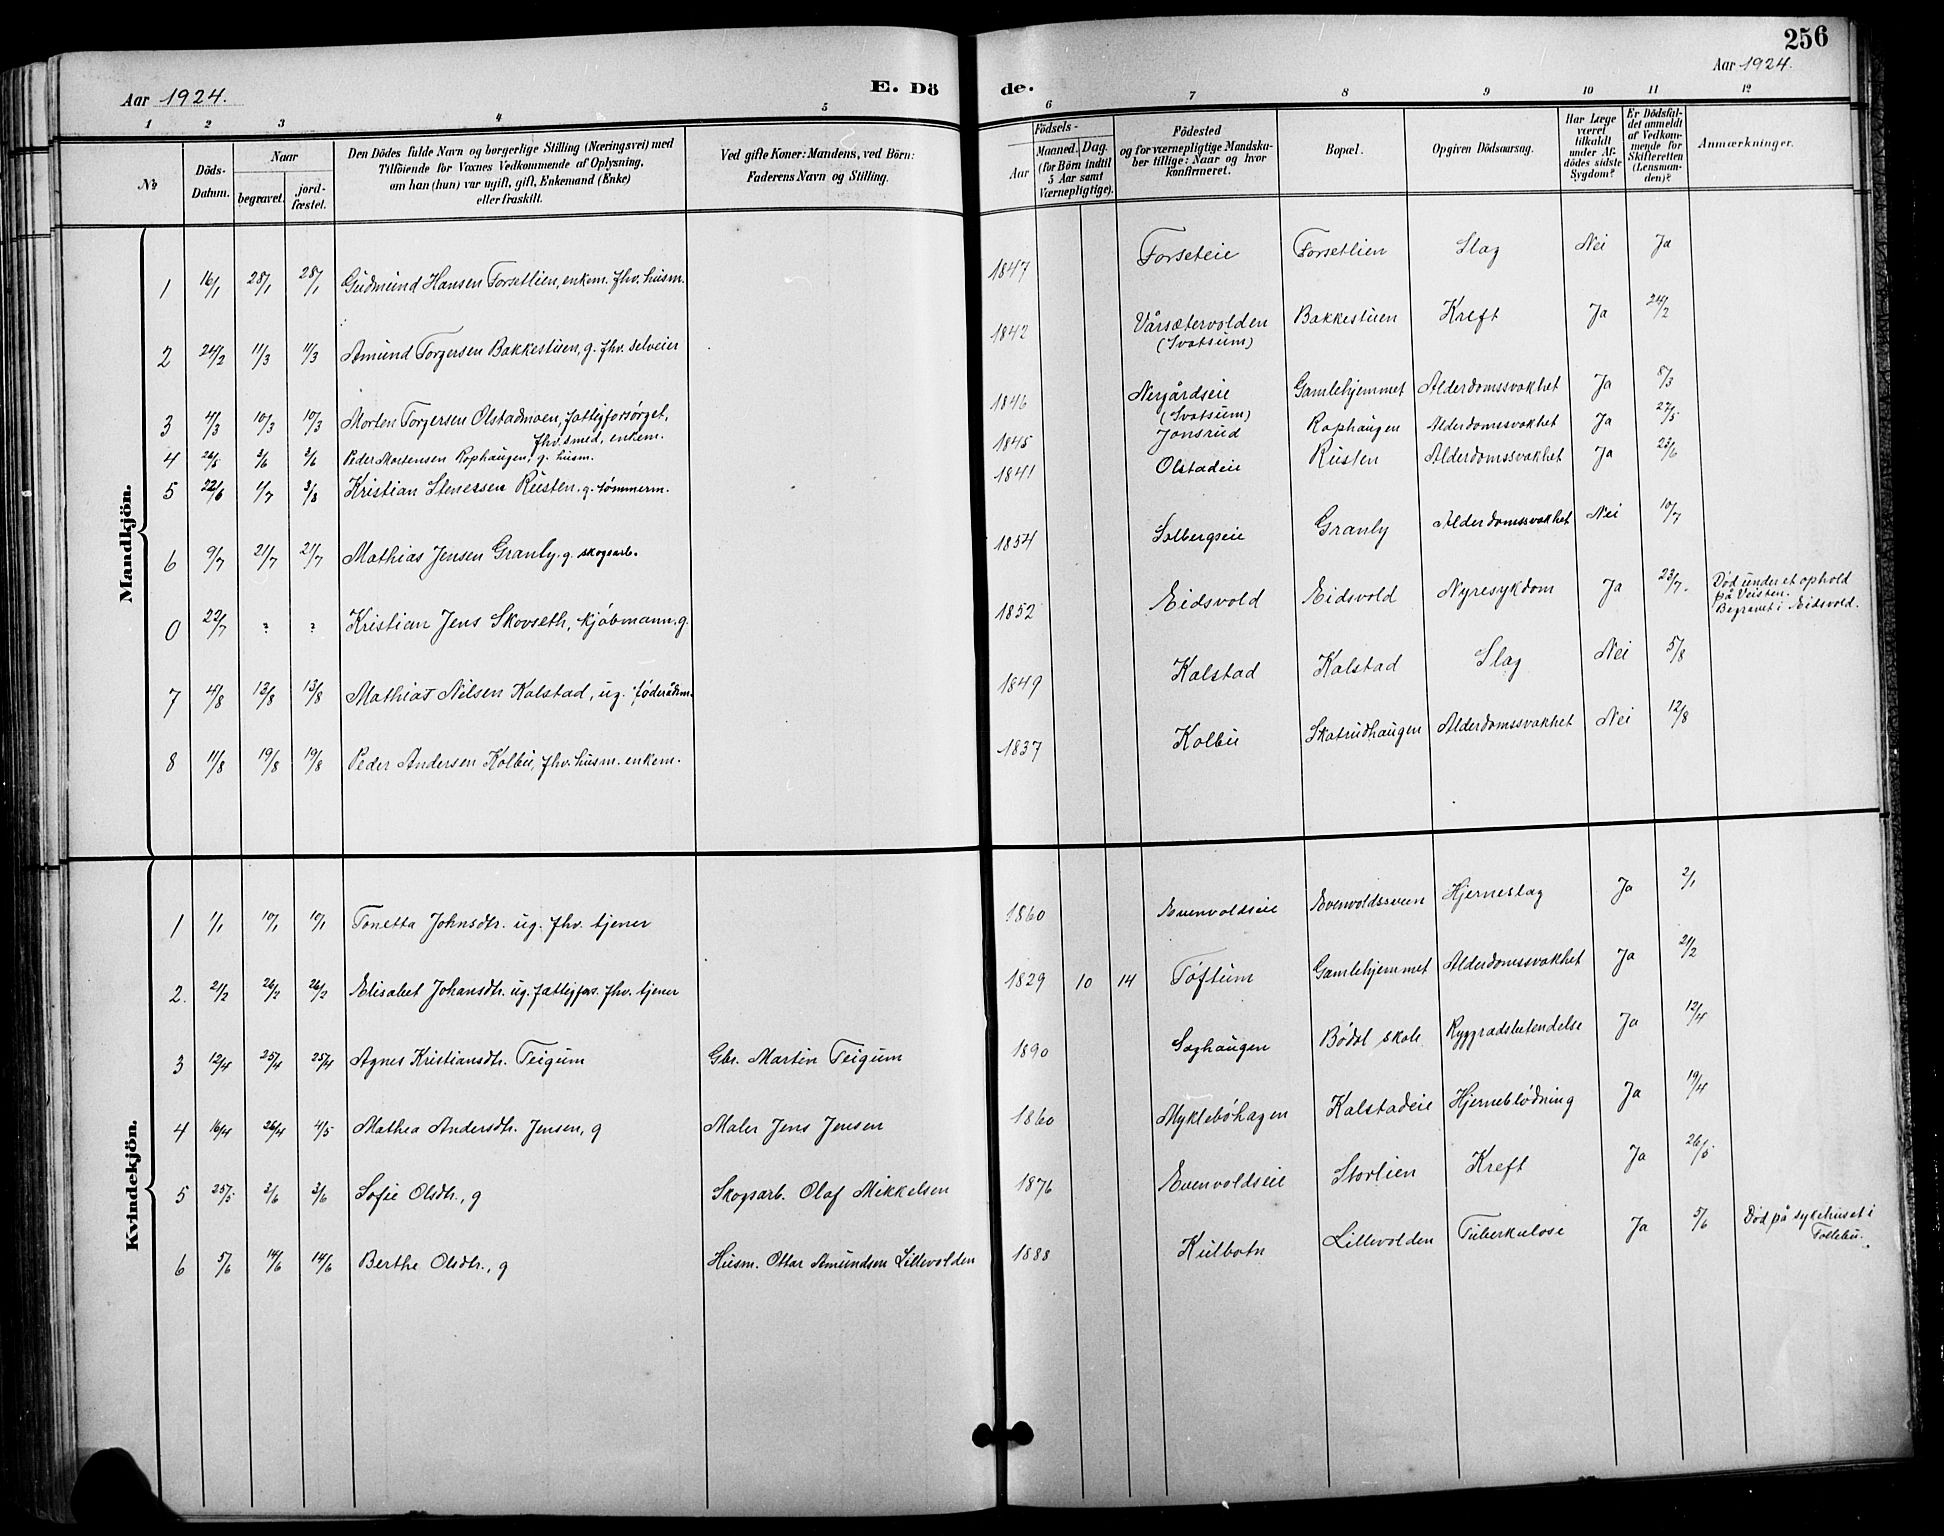 256
Aar 1924.
E. Dö
de.
Aar 1924.
1 2 3 4 5
6 7 8 9 10 11 12
No
Döds-Datum.
Naar
begravet.
jord-fæstet.
Den Dödes fulde Navn og borgerlige Stilling (Næringsvei) med
Tilföiende for Voxnes Vedkommende af Oplysning,
om han (hun) var ugift, gift, Enkemand (Enke)
eller fraskilt.
Ved gifte Koner: Mandens, ved Börn:
Faderens Navn og Stilling.
Födsels-
Aar
Maaned. Dag.
(for Börn indtil
5 Aar samt
Værnepligtige).
Födested
og for værnepligtige Mandska-
ber tillige: Naar og hvor
konfirmeret.
Bopæl.
Opgiven Dödsaarsag.
Har Læge
været
tilkaldt
under Af-
dödes sidste
Sygdom?
Er Dödsfal-
det anmeldt
af Vedkom-
mende for
Skifteretten
(Lensman-
den)?
Anmærkninger.
Mandkjön.
1 16/1 28/1 28/1 Gudmund Hansen Forsetlien, enkem. fhv. husm. 1847 Forseteie Forsetlien Slag Nei Ja
2 24/2 11/3 11/3 Amund Torgersen Bakkestuen, g. fhv. selveier 1842 Vårsætervolden (Svatsum) Bakkestuen Kreft Ja 24/2
3 4/3 10/3 10/3 Morten Torgersen Olstadmoen, fattigforsørget, fhv. smed, enkem. 1846 Nergårdseie (Svatsum) Gamlehjemmet Alderdomssvakhet Ja 8/3
4 26/5 3/6 3/6 Peder Mortensen Rophaugen, g. husm. 1845 Jonsrud Rophaugen Alderdomssvakhet Ja 27/5
5 22/6 1/7 3/8 Kristian Stenessen Rusten, g. tømmerm. 1841 Olstadeie Rusten Alderdomssvakhet Ja 23/6
6 9/7 21/7 21/7 Mathias Jensen Granly, g. skogsarb. 1854 Solbergseie Granly Alderdomssvakhet Nei 10/7
0 22/7 ? ? Kristian Jens Skovseth, kjøbmann, g. 1852 Eidsvold Eidsvold Nyresykdom Ja 23/7. Død under et ophold på Veisten. Begravet i Eidsvold.
7 4/8 13/8 13/8 Mathias Nilsen Kalstad, ug. føderådsm. 1849 Kalstad Kalstad Slag Nei 5/8
8 11/8 19/8 19/8 Peder Andersen Kolbu, fhv. husm. enkem. 1837 Kolbu Skatrudhaugen Alderdomssvakhet Nei 12/8
Kvindekjön.
1 1/1 10/1 10/1 Tonetta Johnsdtr. ug. fhv. tjener 1860 Evenvoldseie Evenvoldsveen Hjerneslag Ja 2/1
2. 21/2 26/2 26/2 Elisabet Johansdtr. ug. fattigfors. fhv. tjener 1829 10 14 Tøftum Gamlehjemmet Alderdomssvakhet Ja 21/2
3 12/4 25/4 25/4 Agnes Kristiansdtr. Teigum Gbr. Martin Teigum 1890 Saghaugen Bødal skole Ryggradsbetendelse Ja 12/4
4 16/4 26/4 4/5 Mathea Andersdtr. Jensen, g Maler Jens Jensen 1860 Myklebøhagen Kalstadeie Hjerneblødning Ja 19/4
5 25/5 3/6 3/6 Sofie Olsdtr., g Skogsarb. Olaf Mikkelsen 1876 Evenvoldseie Storlien Kreft Ja 26/5
6 5/6 14/6 14/6 Berthe Olsdtr., g Husm. Ottar Amundsen Lillevolden 1888 Kulbotn Lillevolden Tuberkulose Ja 5/6 Død på sykehuset i Follebu.